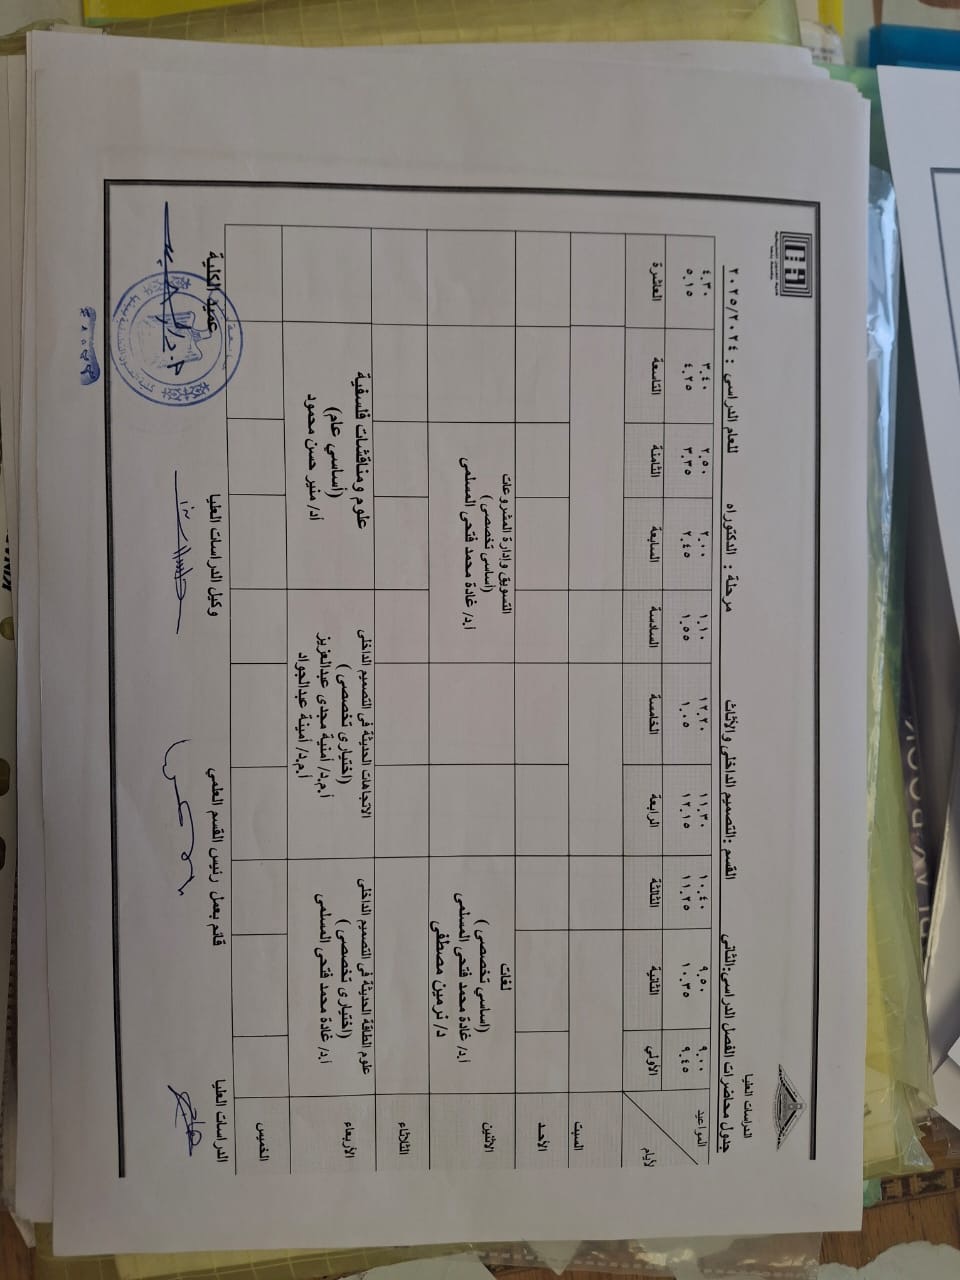 الدراسات العليا
جدول محاضرات الفصل الدراسي:الثاني القسم :التصميم الداخلي والأثاث مرحلة : الدكتوراه للعام الدراسي : ٢٠٢٥/٢٠٢٤
المواعيد ٩.٠٠ ٩.٥٠ ١٠.٤٠ ١١.٣٠ ١٢.٢٠ ١.١٠ ٢.٠٠ ٢.٥٠ ٣.٤٠ ٤.٣٠
٩.٤٥ ١٠.٣٥ ١١.٢٥ ١٢.١٥ ١.٠٥ ١.٥٥ ٢.٤٥ ٣.٣٥ ٤.٢٥ ٥.١٥
الأيام الأولي الثانية الثالثة الرابعة الخامسة السادسة السابعة الثامنة التاسعة العاشرة
السبت
الأحد
الاثنين
لغات
(اساسي تخصصى )
أ.د/ غادة محمد فتحى المسلمى
د/ نرمين مصطفى
التسويق وإدارة المشروعات
(أساسى تخصصى )
أ.د/ غادة محمد فتحى المسلمى
الثلاثاء
الأربعاء
علوم الطاقة الحديثة فى التصميم الداخلى
(اختيارى تخصصى )
أ.د/ غادة محمد فتحى المسلمى
الاتجاهات الحديثة فى التصميم الداخلى
(اختيارى تخصصى )
أ.م.د/ أمنية مجدى عبدالعزيز
أ.م.د/ أمينة عبدالجواد
علوم ومناقشات فلسفية
(أساسي عام)
أد/ منير حسن محمود
الخميس
الدراسات العليا قائم بعمل رئيس القسم العلمي وكيل الدراسات العليا عميد الكلية